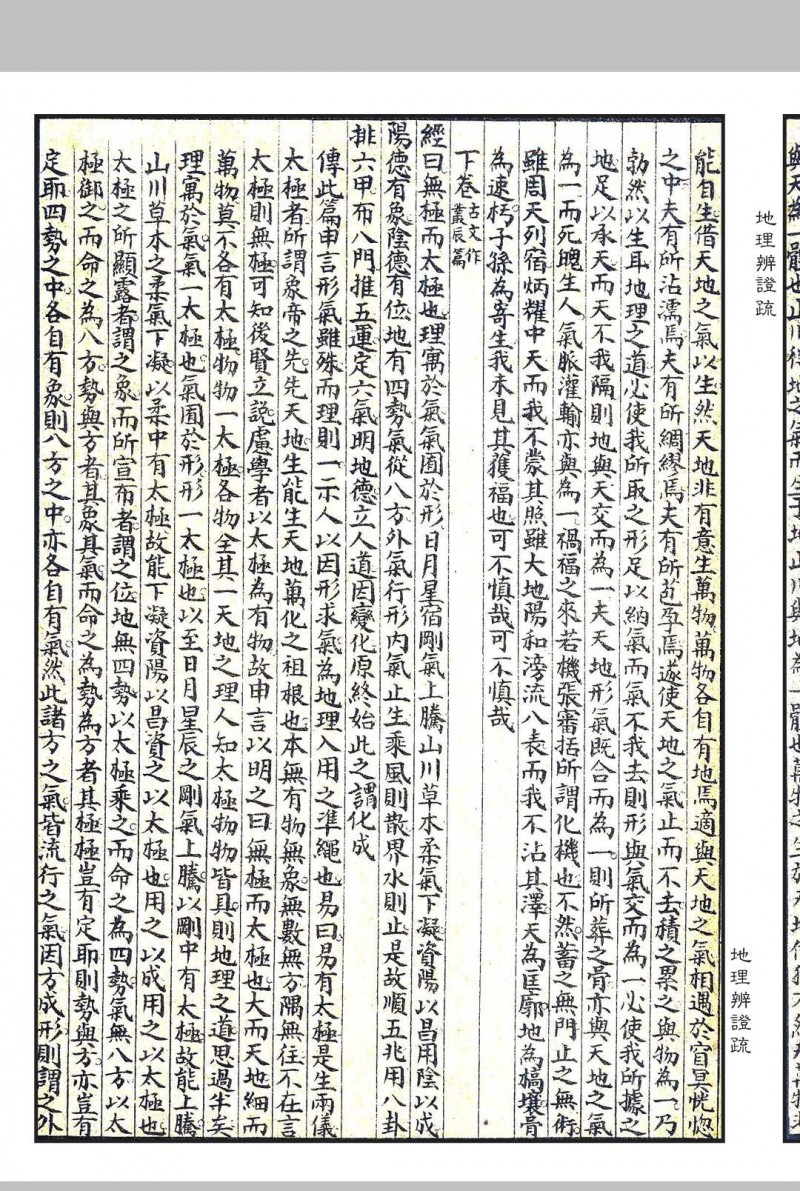 能自生借天地之氣以生然天地非有意生萬物萬物各自有地焉適與天地之氣相遇於窅冥恍惚
之中夫有所沾濡焉夫有所綢繆焉夫有所苞孕焉遂使天地之氣止而不去積之累之與物為一乃
勃然以生耳地理之道必使我所取之形足以納氣而氣不我去則形與氣交而為一必使我所據之
地足以承天而天不我隔則地與天交而為一夫天地形氣既合而為一則所葬之骨亦與天地之氣
為一而死魄生人氣脈灌輸亦與為一禍福之來若機張審括所謂化機也不然蓄之無門止之無術
雖周天列宿炳耀中天而我不蒙其照雖大地陽和滂流八表而我不沾其澤天為匡廓地為槁壤骨
為速朽子孫為寄生我未見其獲福也可不慎哉可不慎哉
下卷古文作叢辰篇
經曰無極而太極也理寓於氣氣囿於形日月星宿剛氣上騰山川草木柔氣下凝資陽以昌用陰以成
陽德有象陰德有位地有四勢氣從八方外氣行形內氣止生乘風則散界水則止是故順五兆用八卦
排六甲布八門推五運定六氣明地德立人道因變化原終始此之謂化成
傳此篇申言形氣雖殊而理則一示人以因形求氣為地理入用之準繩也易曰易有太極是生兩儀
太極者所謂象帝之先先天地生能生天地萬化之祖根也本無有物無象無數無方隅無往不在言
太極則無極可知後賢立說慮學者以太極為有物故申言以明之曰無極而太極也大而天地細而
萬物莫不各有太極物物一太極各物全其一天地之理人知太極物物皆具則地理之道思過半矣
理寓於氣氣一太極也氣囿於形形一太極也以至日月星辰之剛氣上騰以剛中有太極故能上騰
山川草本之柔氣下凝以柔中有太極故能下凝資陽以昌資之以太極也用之以成用之以太極也
太極之所顯露者謂之象而所宣布者謂之位地無四勢以太極乘之而命之為四勢氣無八方以太
極御之而命之為八方勢與方者其象其氣而命之為勢為方者其極極豈有定耶則勢與方亦豈有
定耶四勢之中各自有象則八方之中亦各自有氣然此諸方之氣皆流行之氣因方成形則謂之外
地理辨證疏
地理辨證疏